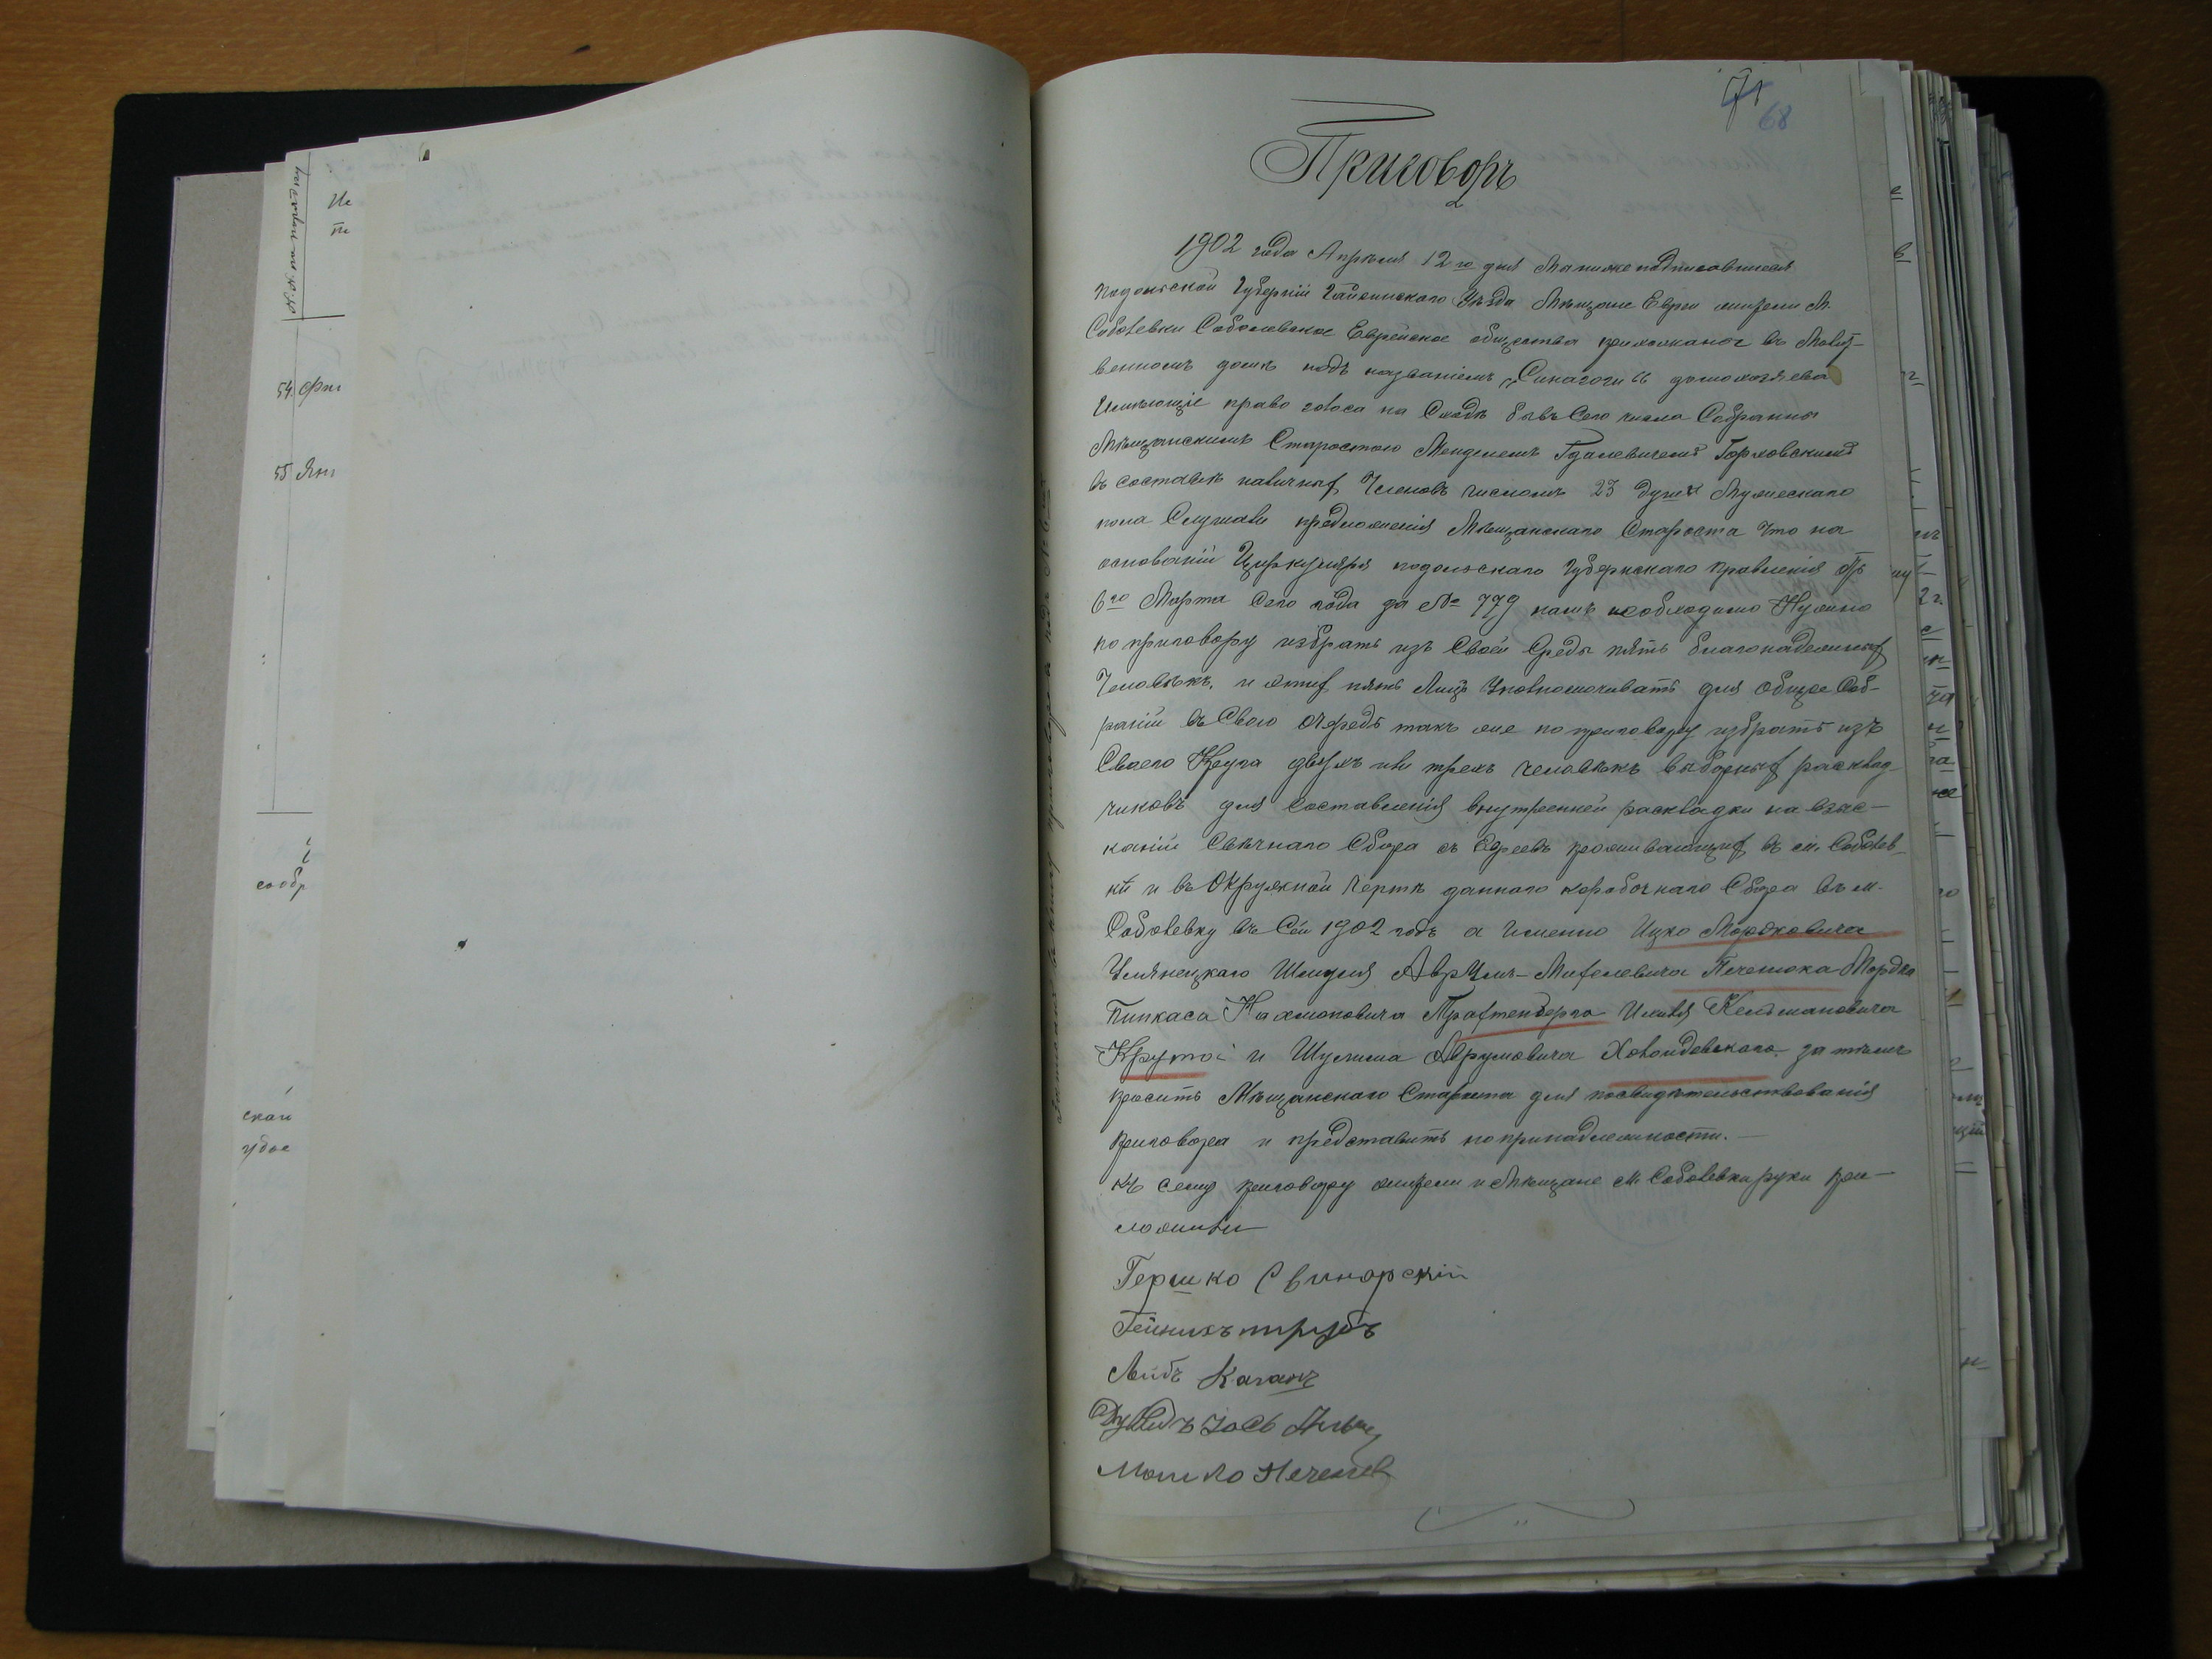 №№ по порядку
54
55
сообр
скаго
71
68
Приговоръ
1902 года Апрѣля 12го дня Мы ниже подписавшиеся
подольской Губерніи Гайсинскаго Уѣзда Мѣщане Евреи жители М.
Соболевки Соболевское Еврейское общества прихожаног въ Молит-
венномъ домѣ подъ названіемъ „Синагоги“ домохозяева
Имѣющіе право голоса на Сходѣ бывъ Сего числа Собранны
Мѣщанскимъ Старостою Менделемъ Гдалевичемъ Горловскимъ
въ составѣ наличных Членовъ числомъ 23 души Мужескаго
пола Слушали предложенія Мѣщанскаго Староста что на
основаніи Циркуляра подольскаго Губернскаго Правленія отъ
6го Марта Сего года за № 779 намъ необходимо Нужно
по приговору избрать изъ Своей Среды пять благонадежных
Человѣкъ, и этих пять Лицъ Уполномочивать для общее Соб-
раніи въ Свою очередь такъ же по приговору избрать изъ
Своего Круга двухъ или трехъ человѣкъ выборных расклад-
чиковъ для Составленія внутренней раскладки на взас-
каніи Свѣчнаго Сбора съ Евреевъ проживающих въ м. Соболев-
кѣ и въ Окружной чертѣ даннаго коробочнаго Сбора въ м.
Соболевку въ Сей 1902 годъ а Именно Ицко Мордковича
Умянецкаго Шмуля Аврумъ-Михелевича Печенюка Мордко
Пинкаса Нахмоновича Трахтенберга Исаиля Кельмановича
Крутой и Шулима Аврумовича Холоидовскаго. за тѣмъ
просить Мѣщанскаго Староста для посвидѣтельствованія
приговора и представить по принадлежности. —
къ сему приговору жители и Мѣщане м. Соболевки руки при-
ложили
Гершко Свинарскій
Гейнихъ трубъ
Лейбъ Каганъ
Дувидъ Іось
Мошко Печенюк